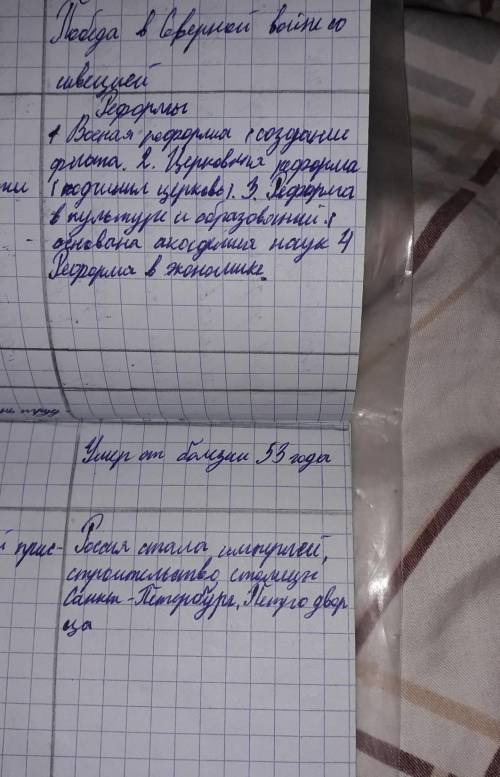 Победа в Северной войне со
швецией
Реформы
1 Военая реформа (создание
флота. 2. Церковная реформа
ти (подчинил церковь). 3. Реформа
в культуре и образований (
основана академия наук 4
Реформа в экономике.
Умер от болезни 53 года
й прис- Россия стала империей,
строительство столицы
Санкт-Петербург, двор
ца